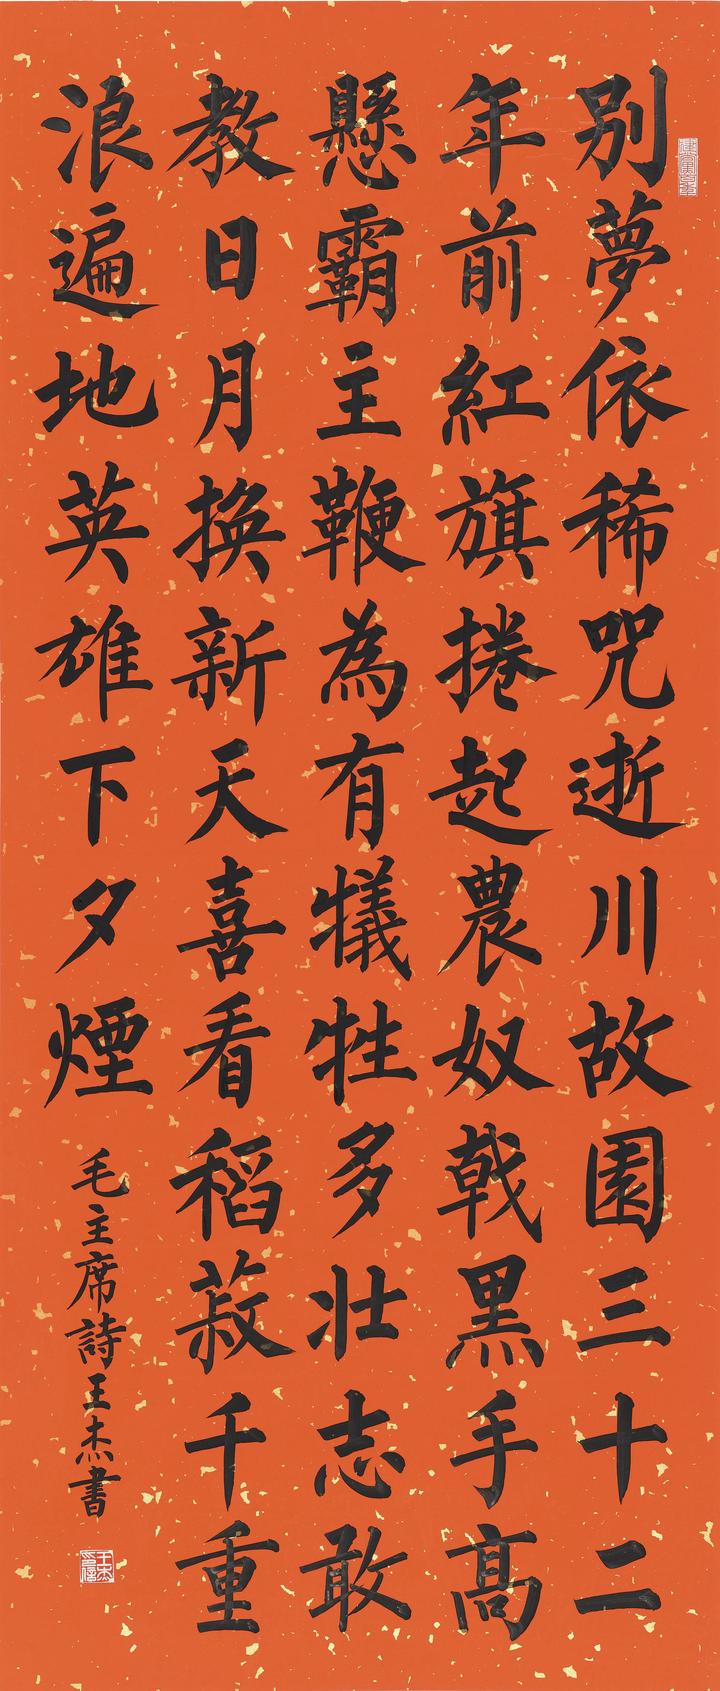 别夢依稀咒逝川故園三十二
年前紅旗捲起農奴戟黑手高
懸霸主鞭為有犧牲多壯志敢
教日月換新天喜看稻菽千重
浪遍地英雄下夕煙
毛主席詩王杰書
王杰印信